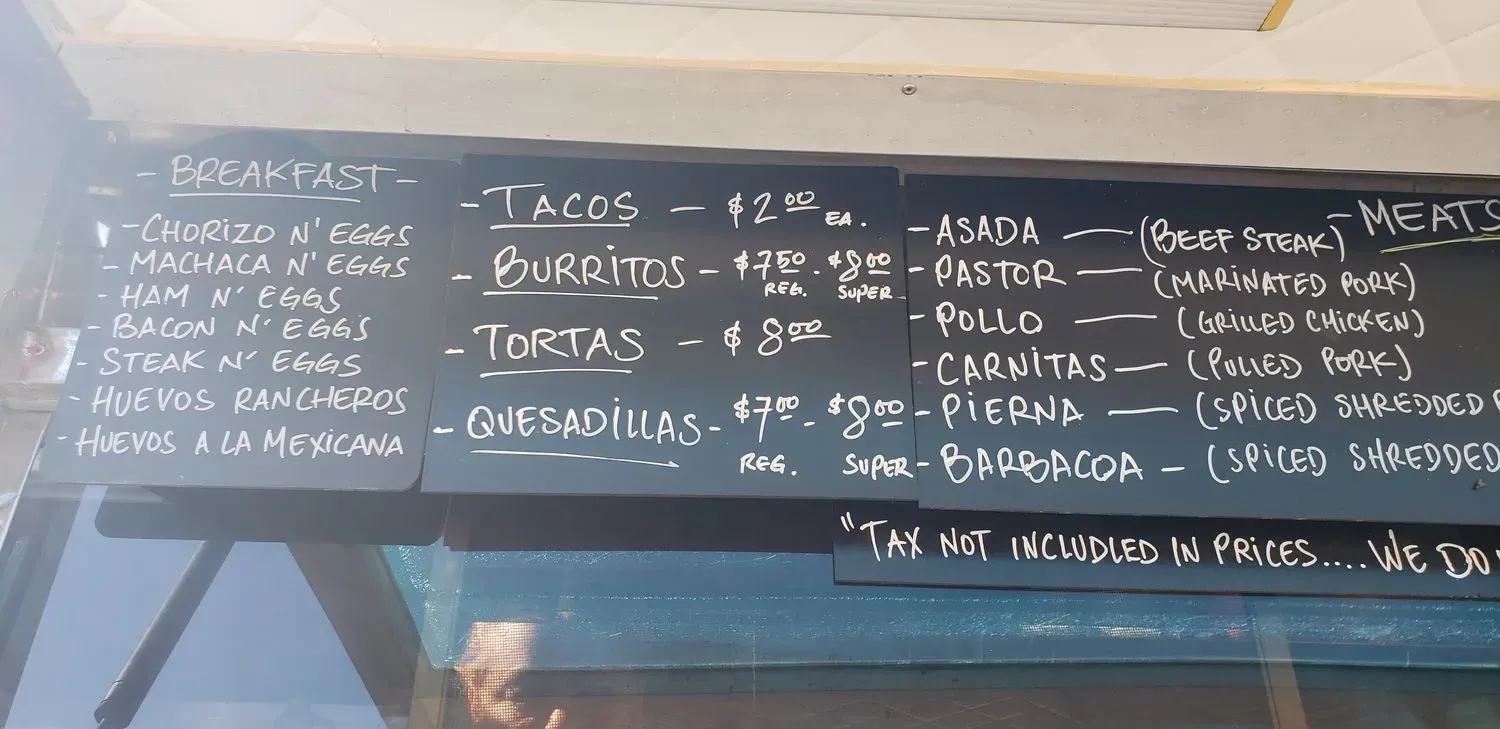 - BREAKFAST -
- CHORIZO N' EGGS
- MACHACA N' EGGS
- HAM N' EGGS
- BACON N' EGGS
- STEAK N' EGGS
- HUEVOS RANCHEROS
- HUEVOS A LA MEXICANA
- TACOS - $2.00 EA.
- BURRITOS - $7.50 - $8.00
REG. SUPER
- TORTAS - $8.00
- QUESADILLAS - $7.00 - $8.00
REG. SUPER
- MEATS
- ASADA — (BEEF STEAK)
- PASTOR — (MARINATED PORK)
- POLLO — (GRILLED CHICKEN)
- CARNITAS — (PULLED PORK)
- PIERNA — (SPICED SHREDDED
- BARBACOA — (SPICED SHREDDED
"TAX NOT INCLUDLED IN PRICES.... WE DO